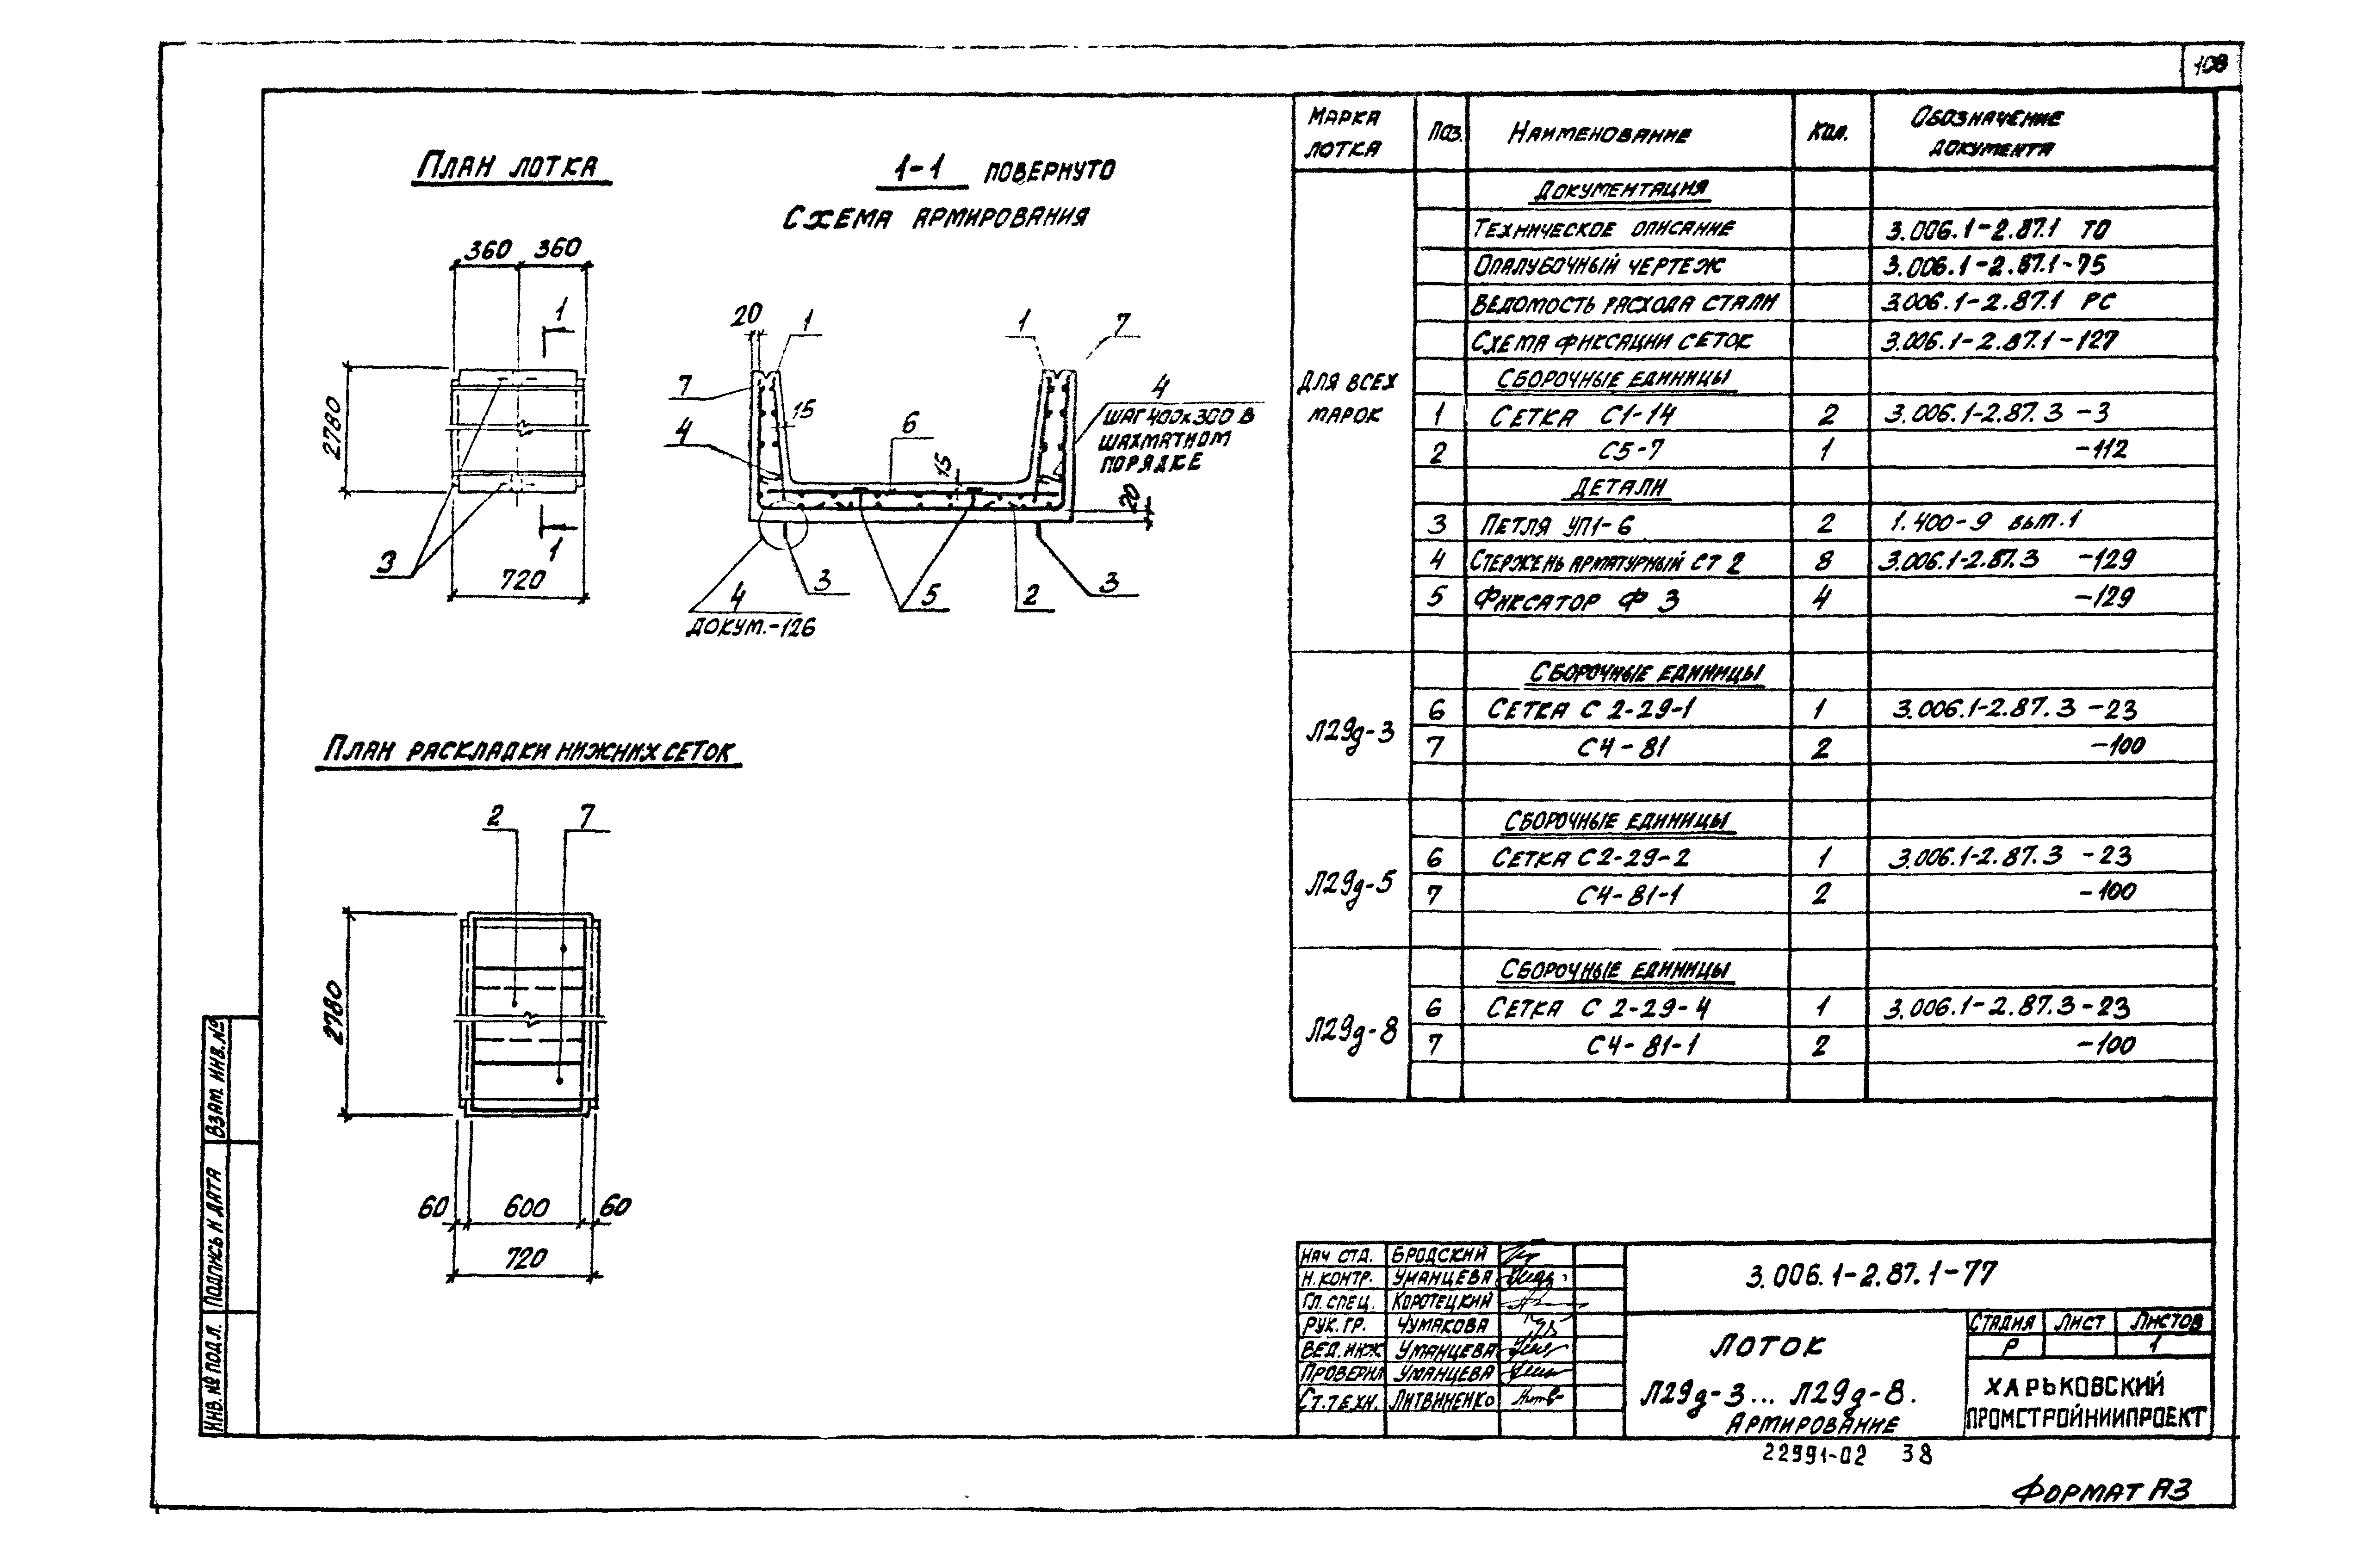 108
План лотка
1-1 повернуто
Схема армирования
360 360
1
2780
1
3
720
20 1 1 7
7 15 6 4
4 15
шаг 400х300 в
шахматном
порядке
20
4 3 5 2 3
докум.-126
План раскладки нижних сеток
2 7
2780
60 600 60
720
Марка лотка Поз. Наименование Кол. Обозначение документа
Для всех марок
Документация
Техническое описание 3.006.1-2.87.1 ТО
Опалубочный чертеж 3.006.1-2.87.1-75
Ведомость расхода стали 3.006.1-2.87.1 РС
Схема фиксации сеток 3.006.1-2.87.1-127
Сборочные единицы
1 Сетка С1-14 2 3.006.1-2.87.3 -3
2 С5-7 1 -112
Детали
3 Петля УП1-6 2 1.400-9 вып.1
4 Стержень арматурный СТ 2 8 3.006.1-2.87.3 -129
5 Фиксатор Ф 3 4 -129
Л29д-3
Сборочные единицы
6 Сетка С 2-29-1 1 3.006.1-2.87.3 -23
7 С4-81 2 -100
Л29д-5
Сборочные единицы
6 Сетка С2-29-2 1 3.006.1-2.87.3 -23
7 С4-81-1 2 -100
Л29д-8
Сборочные единицы
6 Сетка С 2-29-4 1 3.006.1-2.87.3-23
7 С4-81-1 2 -100
Взам. инв. №
Подпись и дата
Инв. № подл.
Нач отд. Бродский
Н. контр. Уманцева
Гл. спец. Коротецкий
Рук. гр. Чумакова
Вед. инж Уманцева
Проверил Уманцева
Ст. техн. Литвиненко
3.006.1-2.87.1-77
Лоток
Л29д-3... Л29д-8.
Армирование
Стадия Лист Листов
Р 1
Харьковский
Промстройниипроект
22991-02 38
Формат А3